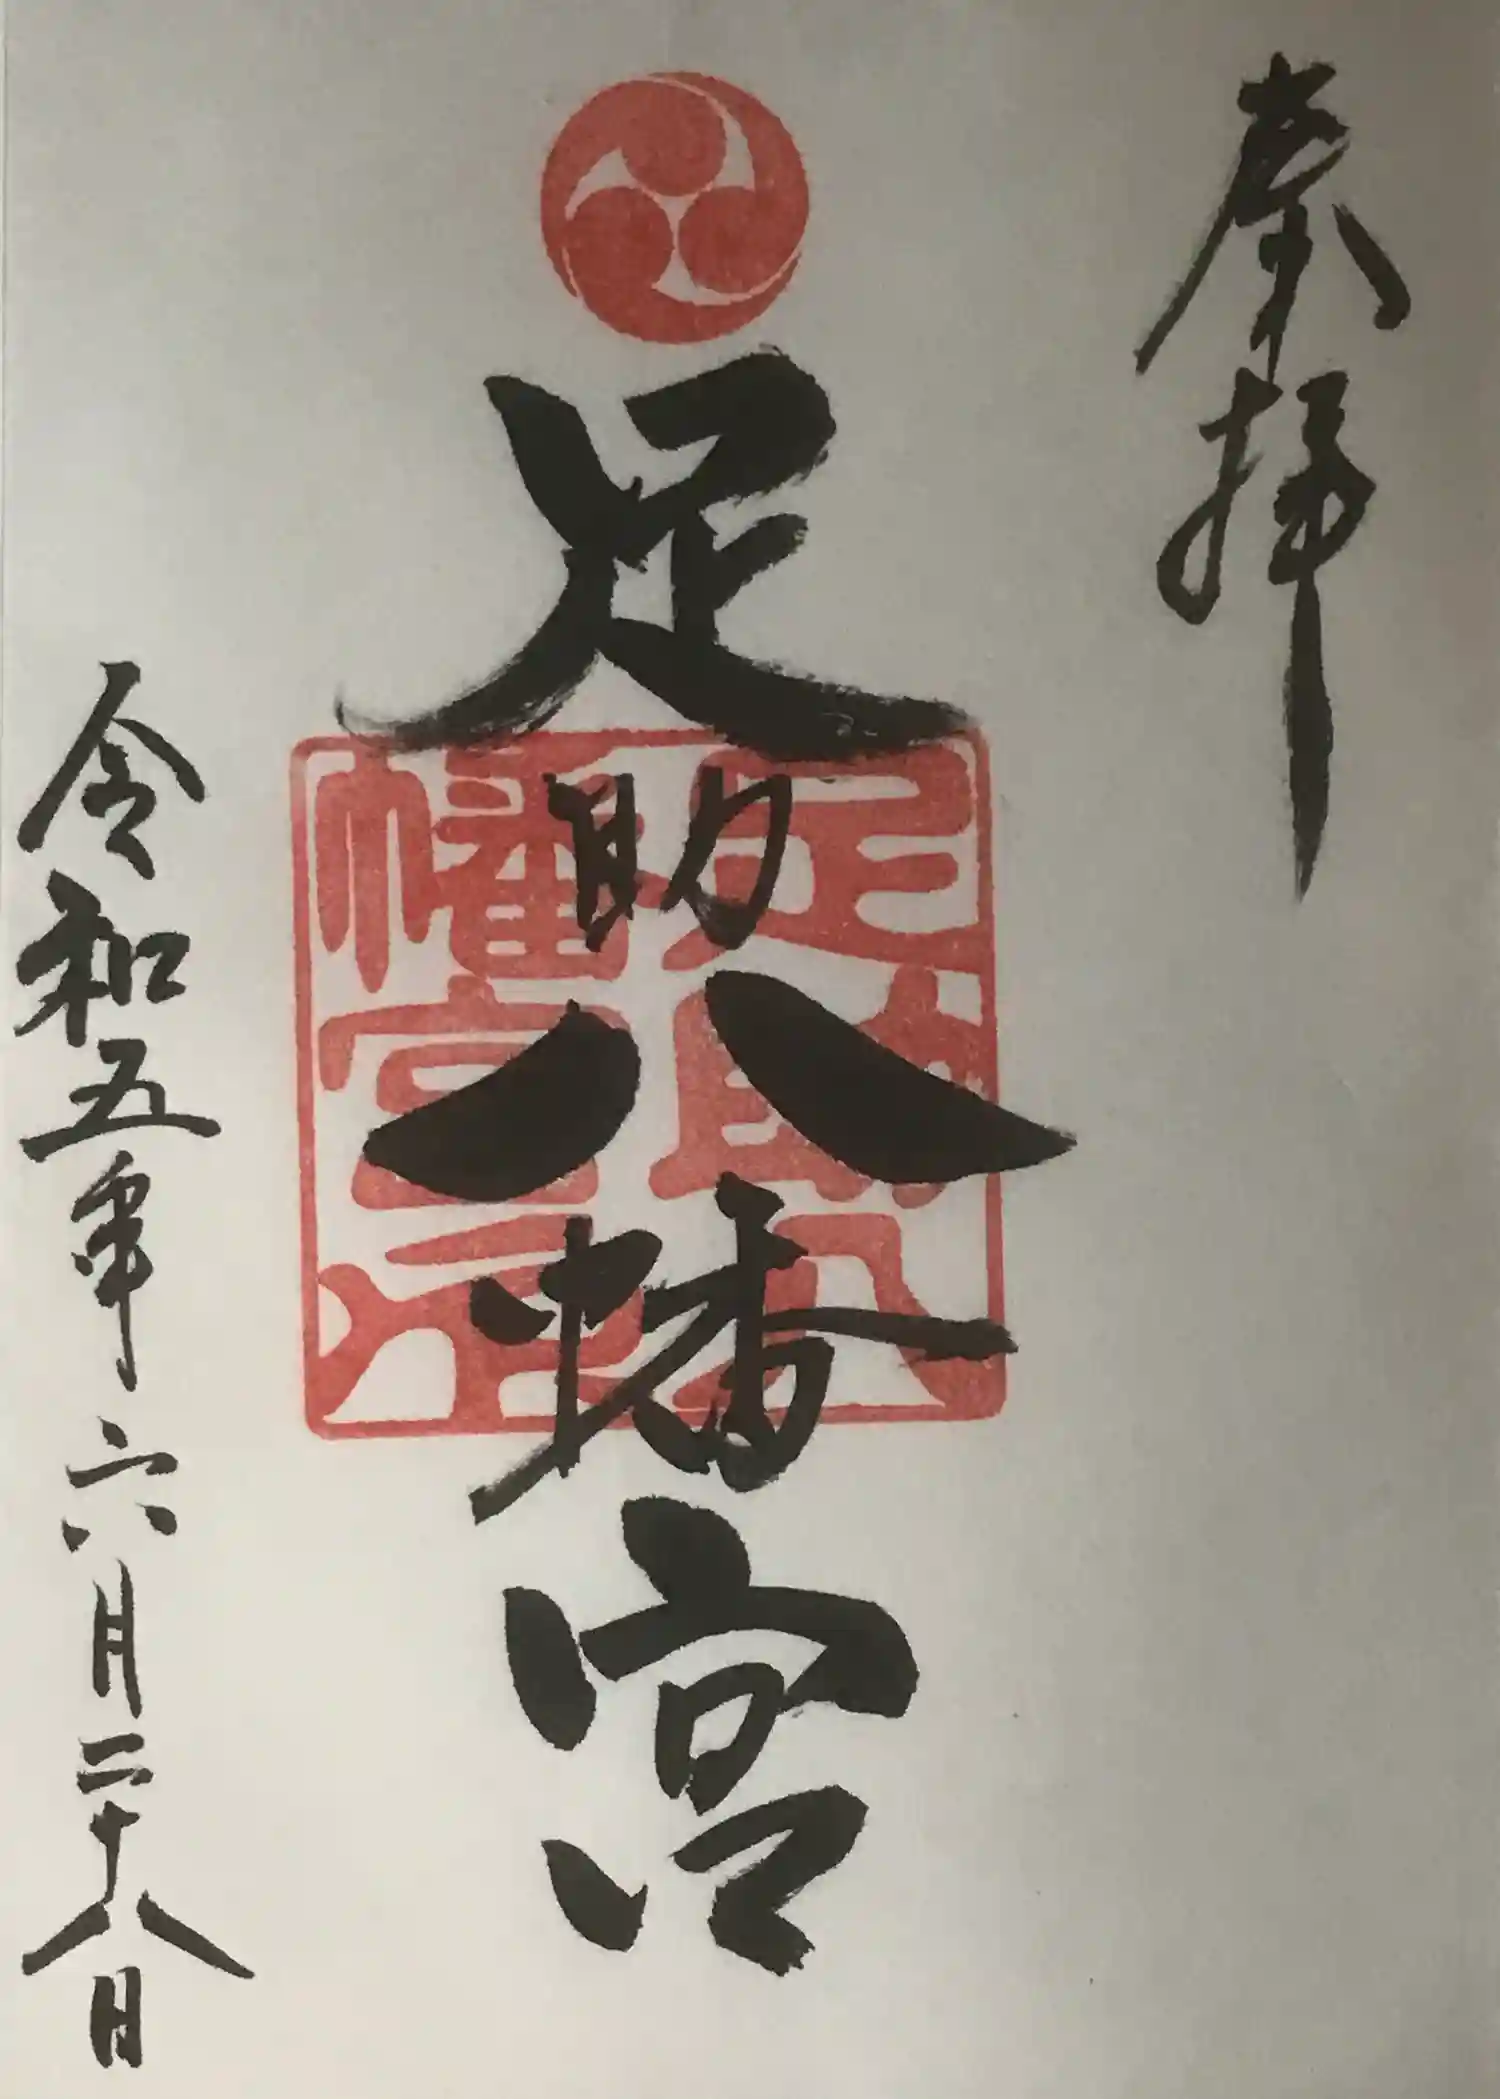 奉拝
足助八幡宮
足助八
幡宮之印
令和五年六月二十八日